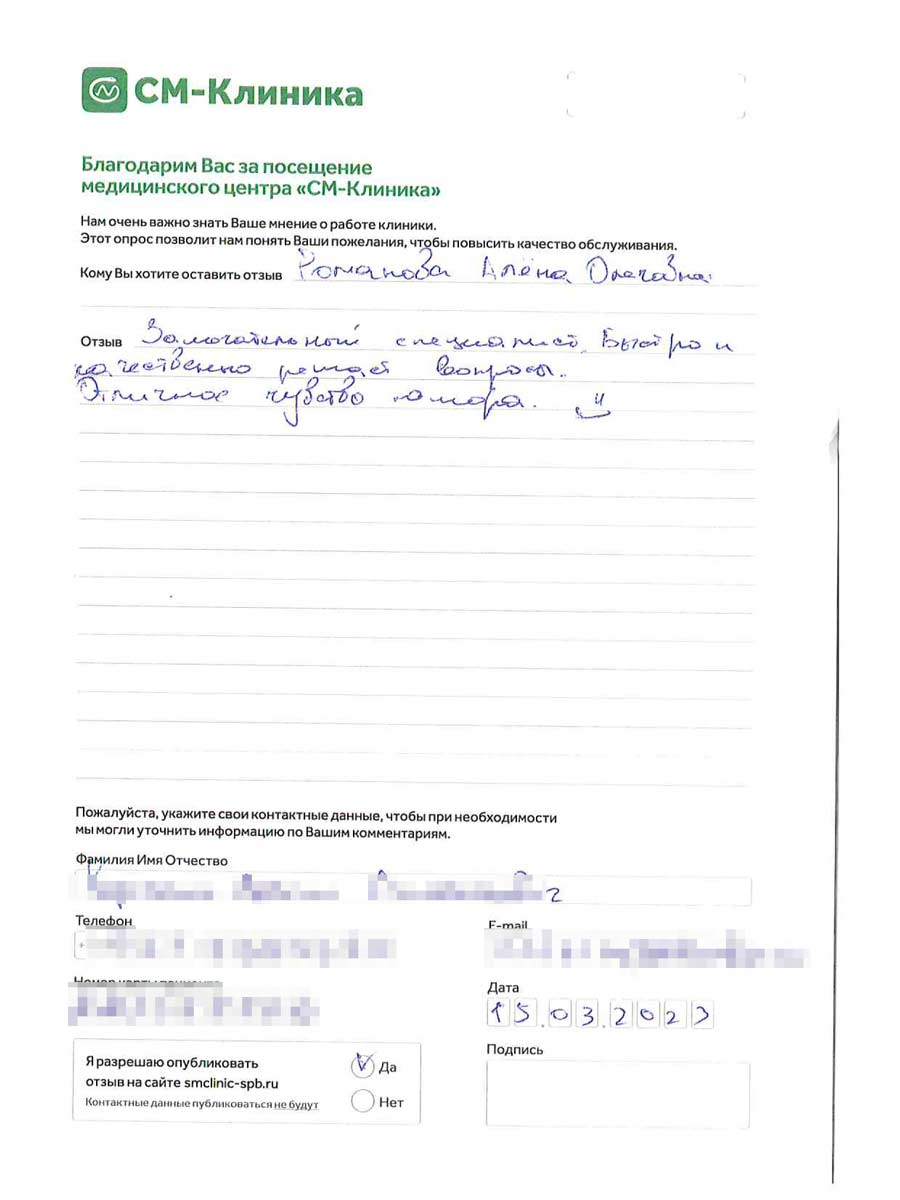 СМ-Клиника
Благодарим Вас за посещение
медицинского центра «СМ-Клиника»
Нам очень важно знать Ваше мнение о работе клиники.
Этот опрос позволит нам понять Ваши пожелания, чтобы повысить качество обслуживания.
Кому Вы хотите оставить отзыв Романова Алёна Олеговна
Отзыв Замечательный специалист. Быстро и
качественно решает вопросы.
Отличное чувство юмора.
Пожалуйста, укажите свои контактные данные, чтобы при необходимости
мы могли уточнить информацию по Вашим комментариям.
Фамилия Имя Отчество
Телефон
E-mail
Номер карты пациента
Дата
15.03.2023
Подпись
Я разрешаю опубликовать
отзыв на сайте smclinic-spb.ru
Контактные данные публиковаться не будут
Да
Нет